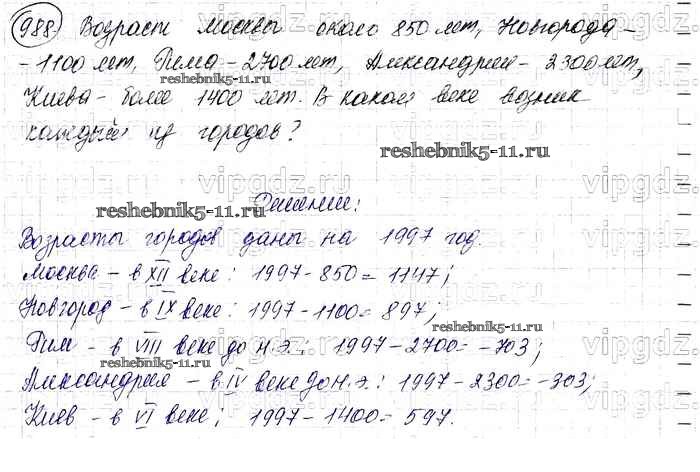 988. Возраст Москвы около 850 лет, Новгорода -
- 1100 лет, Рима - 2700 лет, Александрии - 2300 лет,
reshebnik5-11.ru
Киева - более 1400 лет. В каком веке возник
каждый из городов?
reshebnik5-11.ru
vipgdz.ru
reshebnik5-11.ru
Решение:
Возрасты городов даны на 1997 год.
Москва - в XII веке: 1997 - 850 = 1147;
Новгород - в IX веке: 1997 - 1100 = 897;
reshebnik5-11.ru
Рим - в VIII веке до н.э.: 1997 - 2700 = -703;
Александрия - в IV веке до н.э.: 1997 - 2300 = -303;
reshebnik5-11.ru
Киев - в VI веке: 1997 - 1400 = 597.